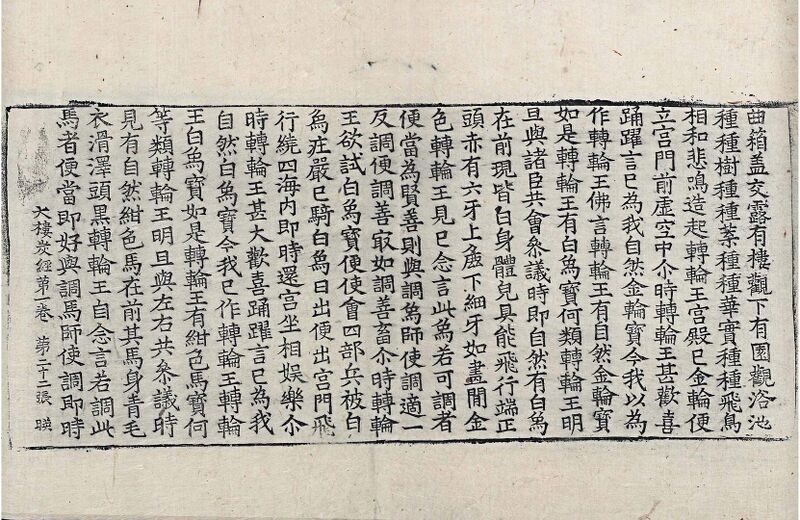 曲箱盖交露有樓觀下有園觀浴池
種種樹種種葉種種華實種種飛鳥
相和悲鳴造起轉輪王宮殿已金輪便
立宮門前虛空中尒時轉輪王甚歡喜
踊躍言已為我自然金輪寶今我以為
作轉輪王佛言轉輪王有自然金輪寶
如是轉輪王有白爲寶何類轉輪王明
旦與諸臣共會叅議時即自然有白爲
在前現皆白身體皃具能飛行端正
頭赤有六牙上麁下細牙如畫間金
色轉輪王見已念言此爲若可調者
便當為賢善則與調爲師使調適一
反調便調善㝡如調善畜尒時轉輪
王欲試白爲寶便使會四部兵被白
爲莊嚴已騎白爲日出便出宮門飛
行繞四海內即時還宮坐相娛樂尒
時轉輪王甚大歡喜踊躍言已為我
自然白爲寶今我已作轉輪王轉輪
王白爲寶如是轉輪王有紺色馬寶何
等類轉輪王明旦與左右共叅議時
見有自然紺色馬在前其馬身青毛
衣滑澤頭黑轉輪王自念言若調此
馬者便當即好與調馬師使調即時
大樓炭經第一卷 第二十二張 暎